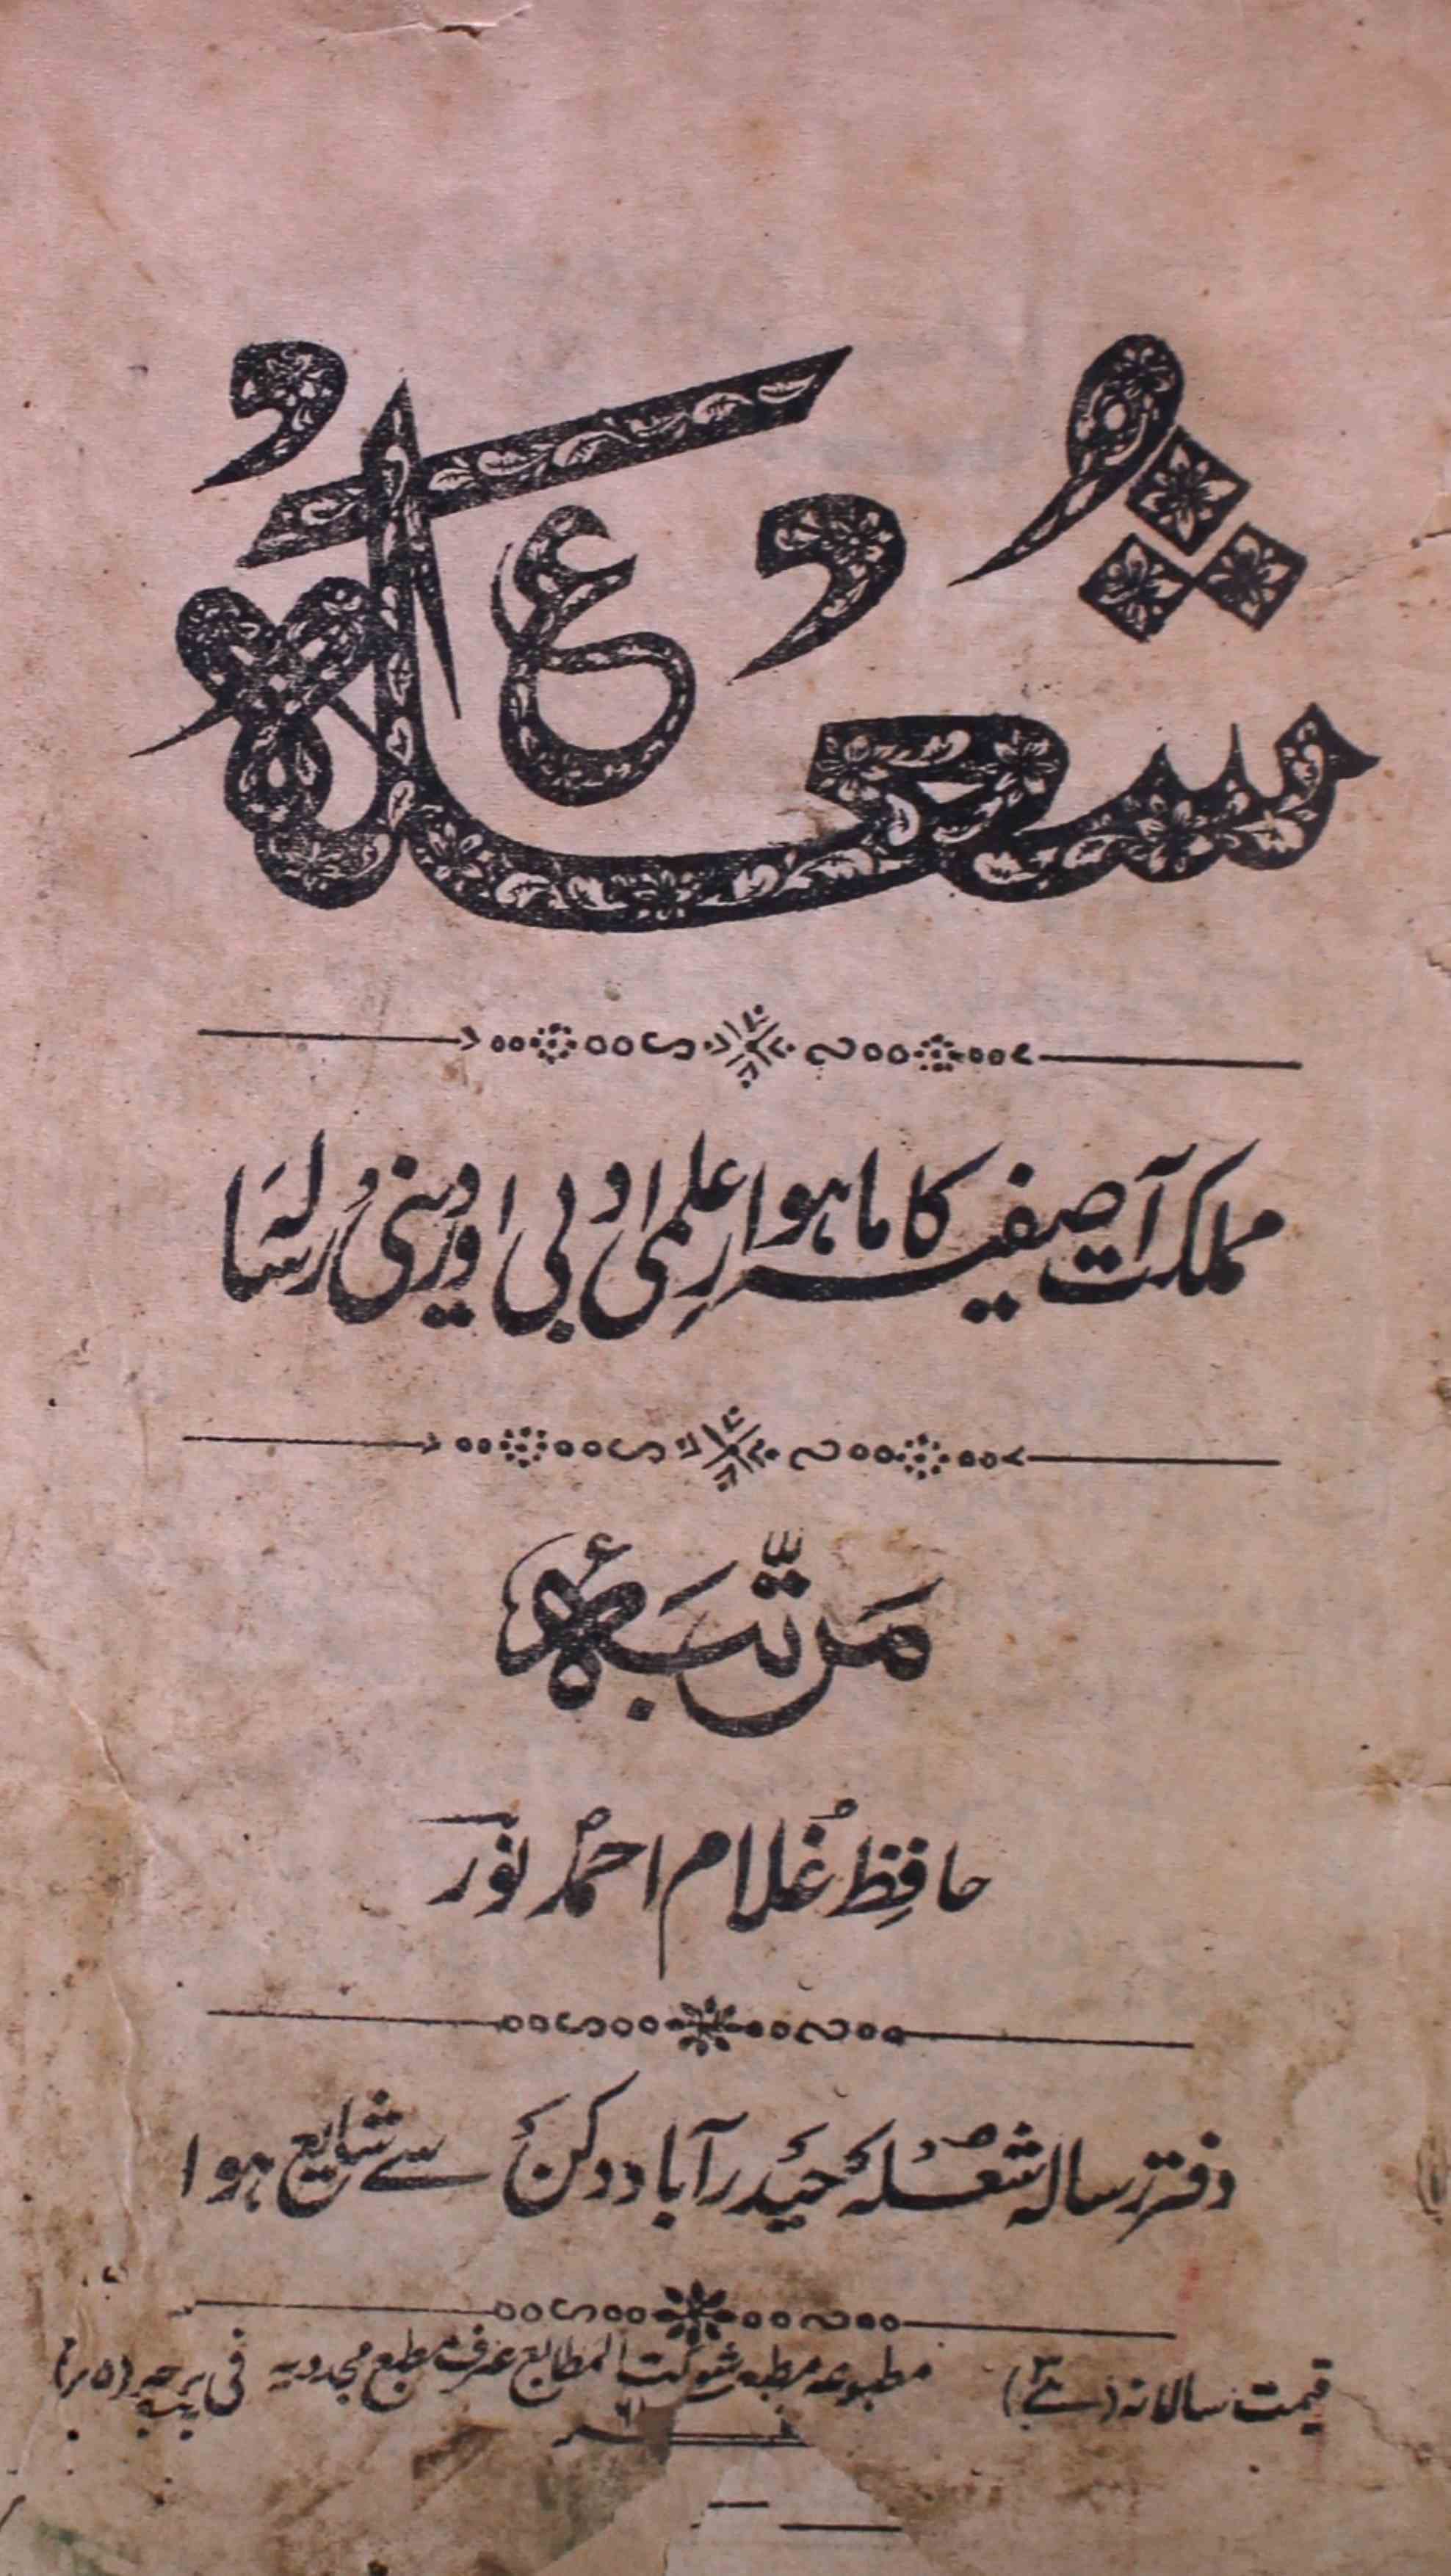 شعلہ
مملکت آصفیہ کا ماہوار علمی ادبی اور دینی رسالہ
مرتبہٴ
حافظ غلام احمد نور
دفتر رسالہ شعلہ حیدرآباد دکن سے شایع ہوا
قیمت سالانہ مطبوعہ مطبہ شوکت المطابع عرف مطبع مجددیہ فی پرچہ (۵ر)